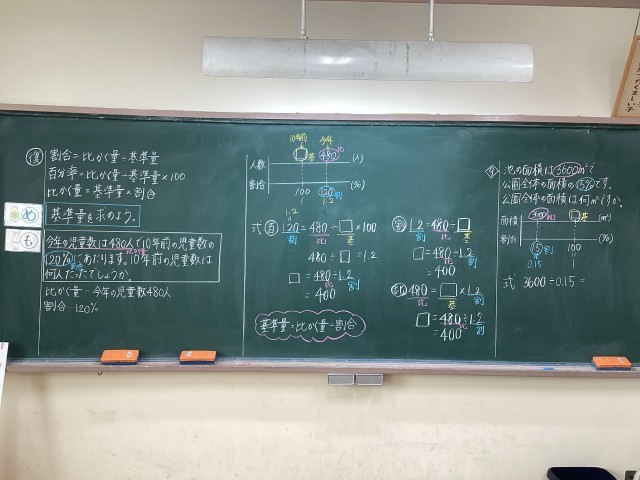 復
割合=比かく量÷基準量
百分率=比かく量÷基準量×100
比かく量=基準量×割合
め
基準量を求めよう。
も
今年の児童数は480人で10年前の児童数の
120%にあたります。10年前の児童数は
何人だったでしょうか。
比かく量…今年の児童数480人
割合…120%
10年前 今年
□基 480比
人数 (人)
割合 (%)
100 120割
1.2
式 百 120=480÷□×100
割 比 基
480÷□=1.2
□=480÷1.2
比 割
=400
基準量=比かく量÷割合
割 1.2=480÷□
割 比 基
□=480÷1.2
比 割
=400
比 480=□×1.2
比 基 割
□=480÷1.2
比 割
=400
池の面積は3600m²で
公園全体の面積の15%です。
公園全体の面積は何m²ですか。
3600比 □基
面積 (m²)
割合 (%)
15割 100
0.15 1
式 3600÷0.15=